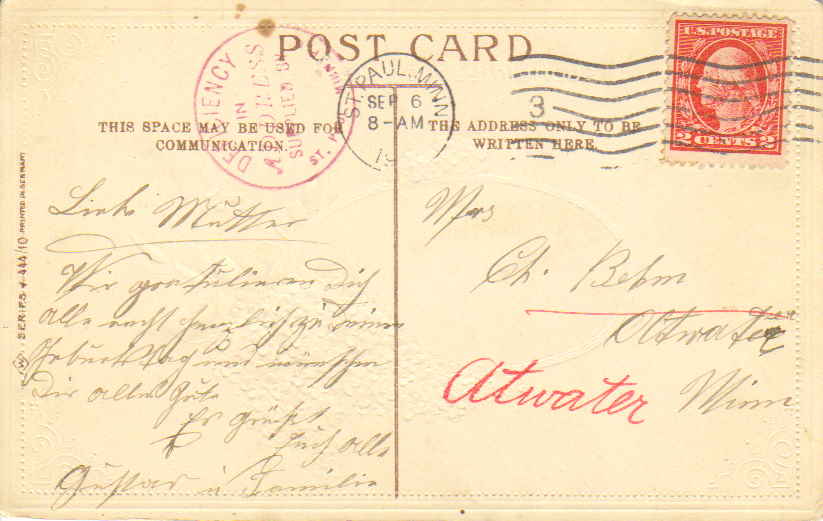 POST CARD
DEFICIENCY
IN
ADDRESS
SUPPLIED BY
ST. PAUL, MINN.
ST. PAUL, MINN.
SEP 6
8-AM
19
3
U.S. POSTAGE
2 CENTS 2
THIS SPACE MAY BE USED FOR
COMMUNICATION.
THE ADDRESS ONLY TO BE
WRITTEN HERE.
SERIES 444/10 PRINTED IN GERMANY
Liebe Mutter
Wir gratulieren Dich
alle recht herzlich zu deinem
Geburtstag und wünschen
Dir alles Gute
Es grüßt
Euch alle
Gustav u Familie
Mrs
Ch. Behm
Atwater
Atwater
Minn